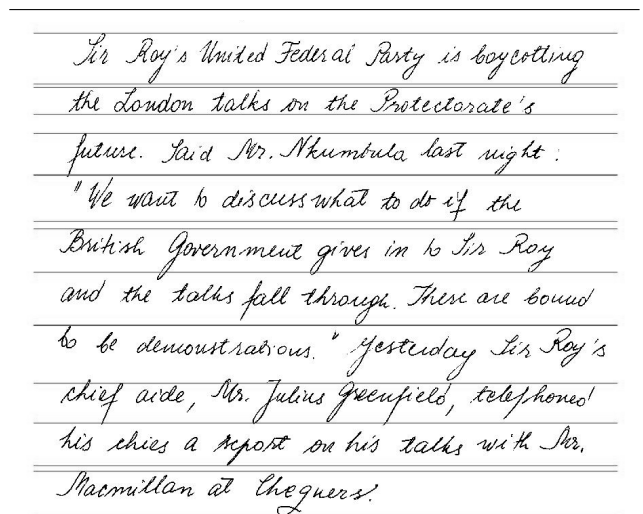 Sir Roy's United Federal Party is boycotting
the London talks on the Protectorate's
future. Said Mr. Nkumbula last night:
"We want to discuss what to do if the
British Government gives in to Sir Roy
and the talks fall through. There are bound
to be demonstrations." Yesterday Sir Roy's
chief aide, Mr. Julius Greenfield, telephoned
his chies a report on his talks with Mr.
Macmillan at Chequers.